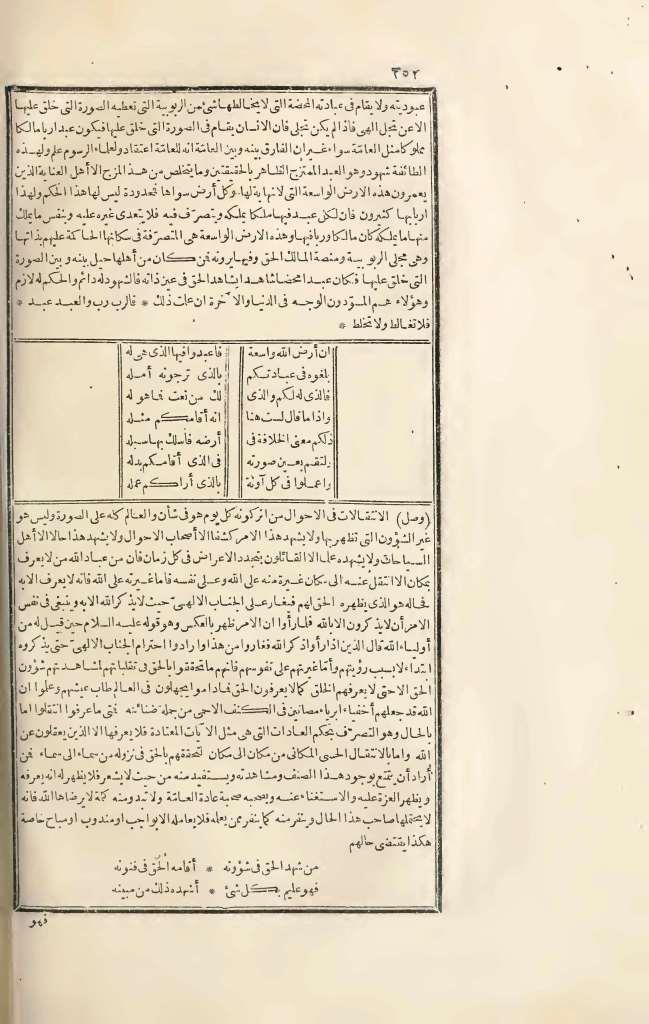 ٣٥٢
عبوديته ولا يقام في عبادته المحضة التي لا يخالطها شئ من الربوبية التي تعطيه الصورة التي خلق عليها
الا عن تجلى الهى فاذا لم يكن تجلى فان الانسان يقام في الصورة التي خلق عليها فيكون عبدا ربا مالكا
مملوكا مثل العامة سواء غير ان الفارق بينه وبين العامة انه للعامة اعتقاد ولعلماء الرسوم علم ولهذه
الطائفة شهود وهو العبد الممتزج الظاهر بالحقيقتين وما يتخلص من هذا المزج الا أهل العناية الذين
يعمرون هذه الارض الواسعة التي لا نهاية لها وكل أرض سواها محدودة ليس لها هذا الحكم ولهذا
اربابها كثيرون فان لكل عبد فيها ملكا يملكه ويتصرف فيه فلا يتعدى غيره عليه وبنفس ما يملك
منها ما يملكه كان مالكا وربا فيها وهذه الارض الواسعة هي المتصرفة في سكانها الحاكمة عليهم بذاتها
وهي مجلى الربوبية ومنصة المالك الحق وفيها يرونه فمن كان من أهلها حيل بينه وبين الصورة
التي خلق عليها فكان عبدا محضا شاهدا يشاهد الحق في عين ذاته فالشهود له دائم والحكم له لازم
وهؤلاء هم المسودون الوجه في الدنيا والآخرة ان علمت ذلك * فالرب رب والعبد عبد *
فلا تغالط ولا تخلط *
ان أرض الله واسعة فاعبدوا فيها الذى هى له
بلغوه في عبادتكم بالذى ترجونه أمله
فالذى له لكم والذى لك من نعت فما هو له
واذا ما قال لست هنا انه أقامكم مثله
ذلكم معنى الخلافة في أرضه فاسلك بها سبله
ولتقم بعين صورته في الذى أقامكم بدله
واعملوا في كل آونة بالذى أراكم عمله
(وصل) الانتقالات في الاحوال من اثر كونه كل يوم هو في شأن والعالم كله على الصورة وليس هو
غير الشؤون التي تظهر بها ولا يشهد هذا الامر كشفا الا أصحاب الاحوال ولا يشهد هذا حالا الا أهل
السياحات ولا يشهده علما الا القائلون بتجدد الاعراض في كل زمان فان من عباد الله من لا يعرف
بمكان الا انتقل عنه الى مكان غيرة منه على الله وعلى نفسه فاما غيرته على الله فانه لا يعرف الا به
فحاله هو الذى يظهره الحق لهم فيغار على الجناب الالهى حيث لا يذكر الله الا به وينبغى في نفس
الامر أن لا يذكرون الا بالله فلما رأوا ان الامر ظهر بالعكس وهو قوله عليه السلام حين قيل له من
أولياء الله قال الذين اذا رأوا ذكر الله فغاروا من هذا وارادوا احترام الجناب الالهى حتى يذكروه
ابتداء لا بسبب رؤيتهم وأما غيرتهم على نفوسهم فانهم ما تحققوا بالحق في تقلباتهم لمشاهدتهم شؤون
الحق الا حتى لا يعرفهم الخلق كما لا يعرفون الحق فما داموا يجهلون في العالم طاب عيشهم وعلموا ان
الله قد جعلهم أخفياء ابرياء مصانين في الكنف الاحمى من جملة ضنائنه فمتى ما عرفوا انتقلوا اما
بالحال وهو التصرف بتحكم العادات التي هى مثل الآيات المعتادة فلا يعرفها الا الذين يعقلون عن
الله واما بالانتقال الحسى المكانى من مكان الى مكان لتحققهم بالحق في نزوله من سماء الى سماء فمن
أراد أن يتمتع بوجود هذا الصنف ومشاهدته ويستفيد منه من حيث لا يشعر فلا يظهر له انه يعرفه
ويظهر العزة عليه والاستغناء عنه ويصحبه صحبة عادة العامة ولا تبدو منه كلمة لا يرضاها الله فانه
لا يحتملها صاحب هذا الحال وينفر منه كما ينفر عن يعمله فلا يعامله الا بواجب او مندوب او مباح خاصة
هكذا يقتضى حالهم
من شهد الحق في شؤونه * أقامه الحق في فنونه
فهو عليم بكل شئ * أشهده ذلك من مبينه
فهو